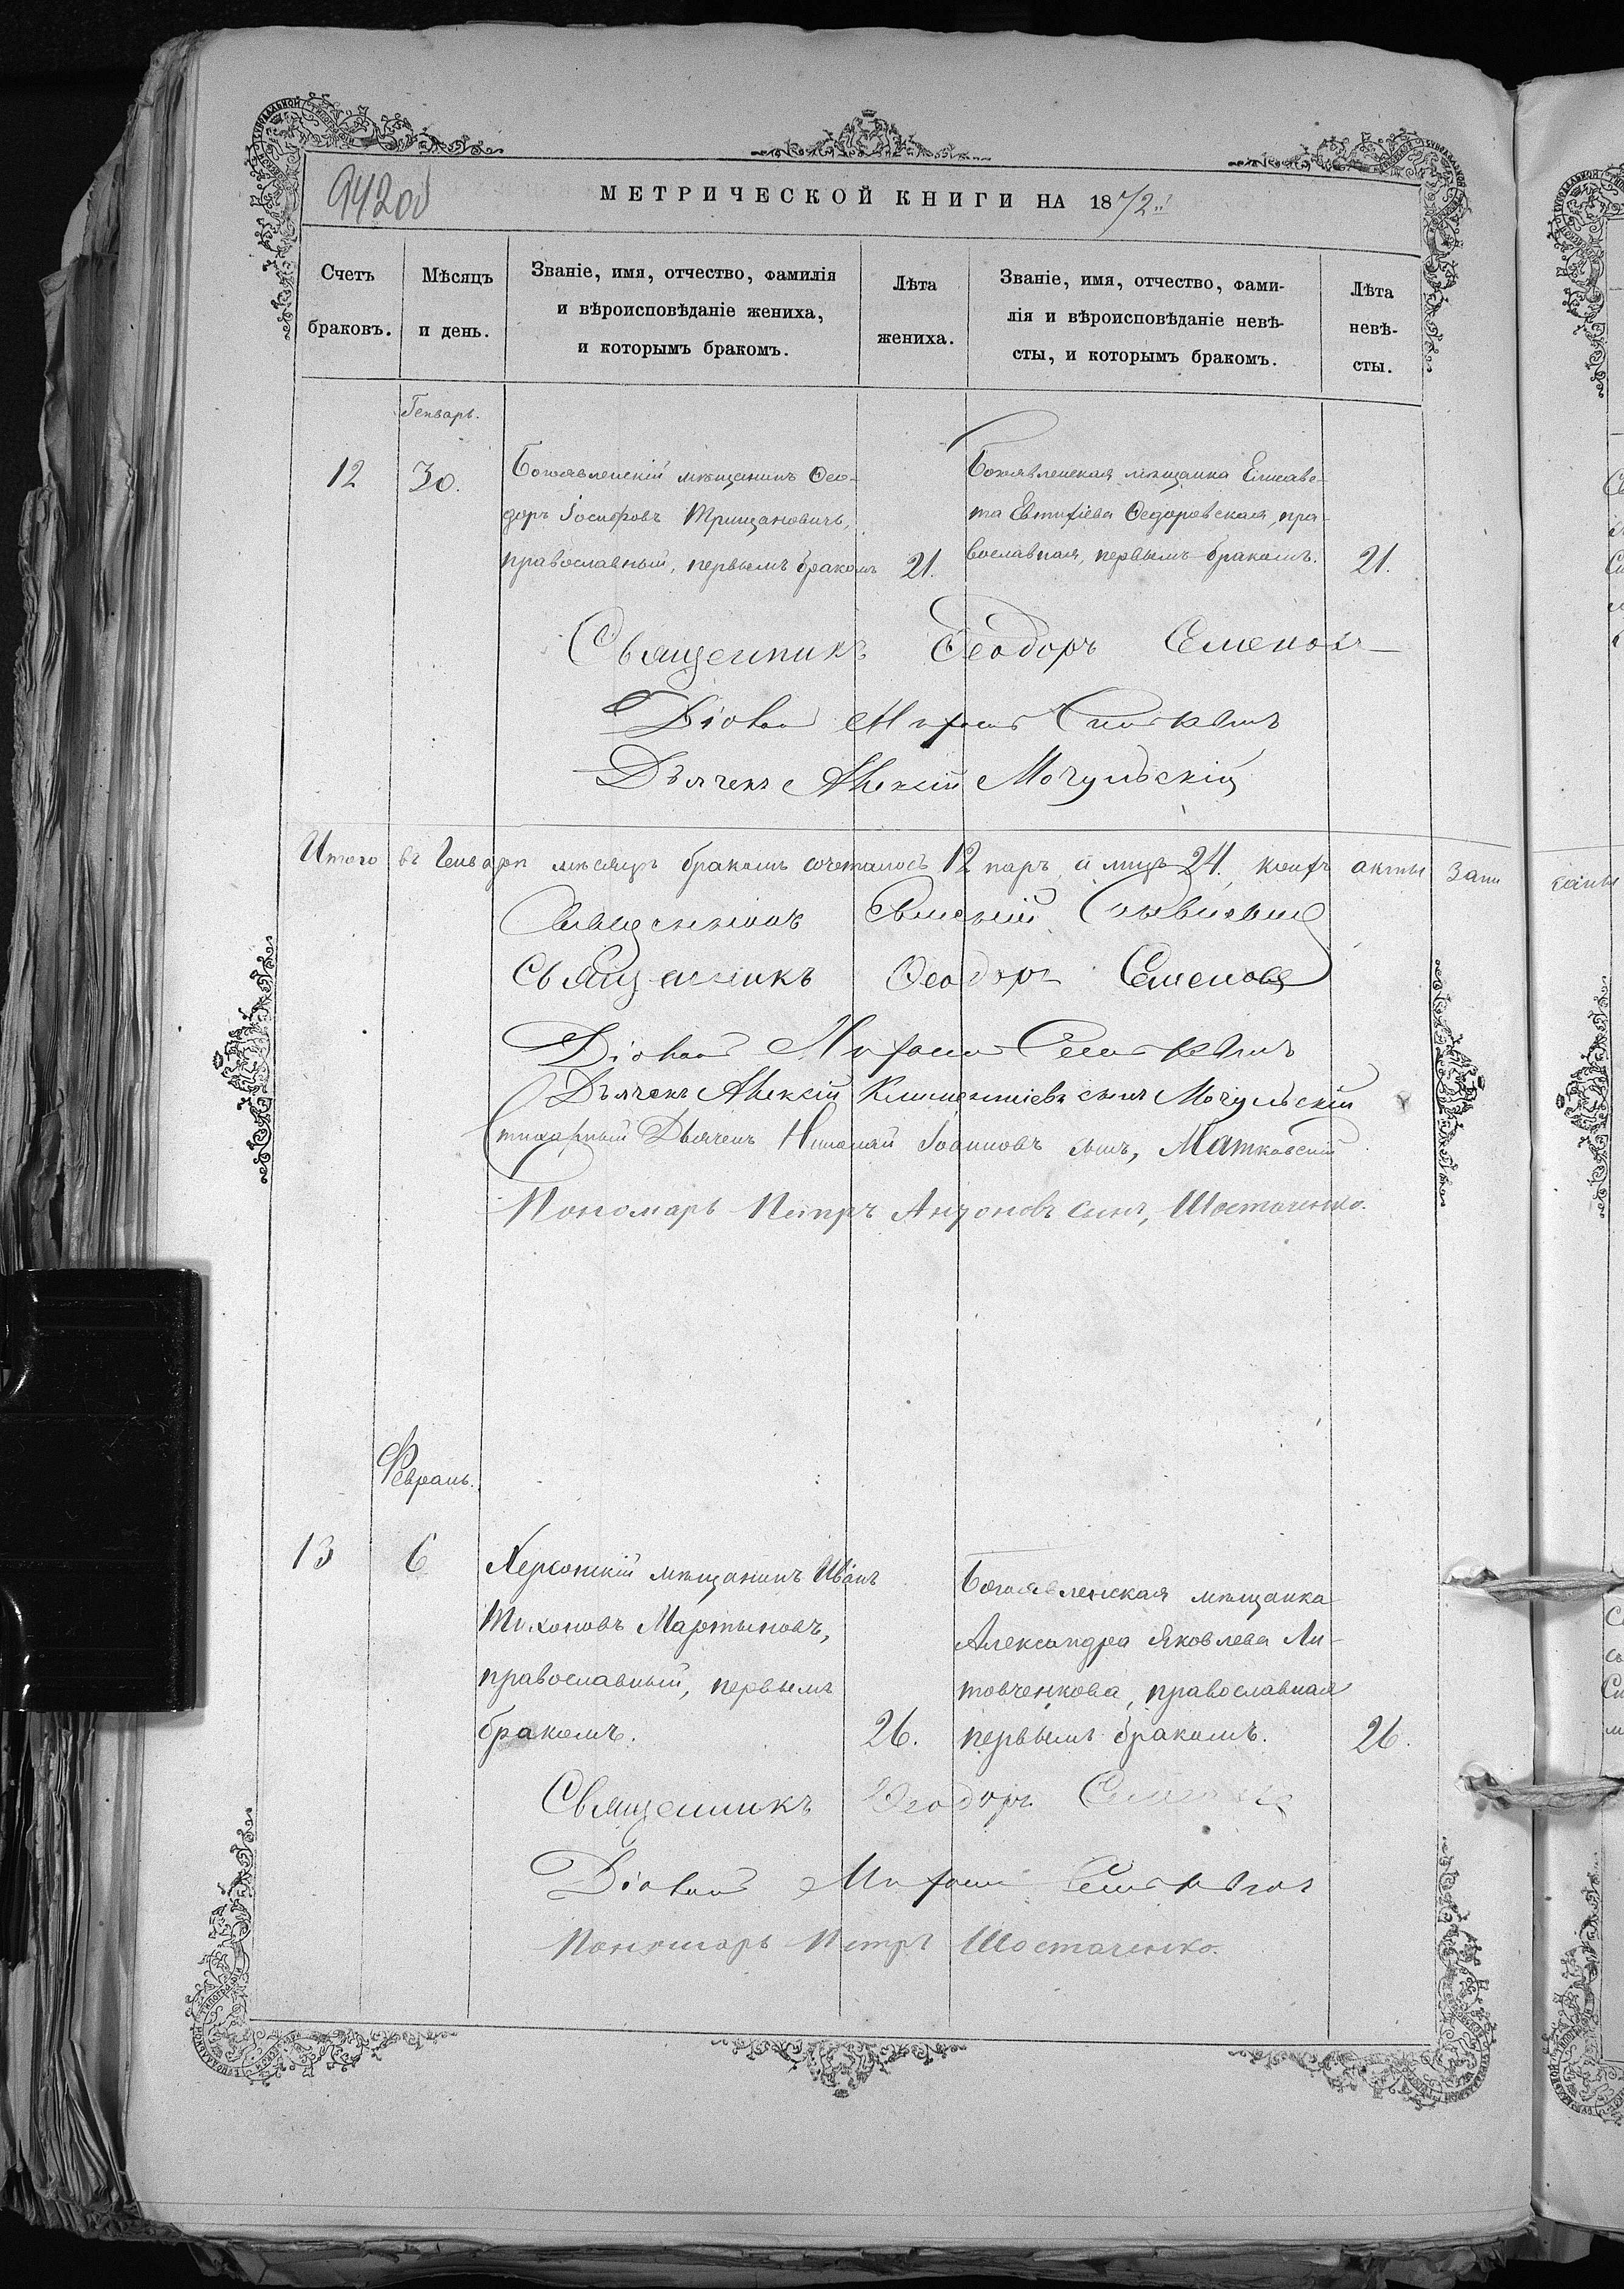 942об
МЕТРИЧЕСКОЙ КНИГИ НА 1872
Счетъ браковъ.
Мѣсяцъ и день.
Званіе, имя, отчество, фамилія
и вѣроисповѣданіе жениха,
и которымъ бракомъ.
Лѣта жениха.
Званіе, имя, отчество, фами-
лія и вѣроисповѣданіе невѣ-
сты, и которымъ бракомъ.
Лѣта невѣ-
сты.
Генварь.
12
30.
Богоявленскій мѣщанинъ Ѳео-
доръ Іосифовъ Трищановичъ,
православный, первымъ бракомъ
21.
Богоявленская мѣщанка Елисаве-
та Евтихіева Ѳедоровская, пра-
вославная, первымъ бракомъ.
21.
Священникъ Ѳеодоръ Семеновъ
Діаконъ
Дьячекъ Алексій Мочульскій
Итого въ Генварѣ мѣсяцѣ бракомъ сочеталось 12 паръ, а лицъ 24, коихъ акты запи
Священникъ
Священникъ Ѳеодоръ Семеновъ
Діаконъ
Дьячекъ Алексій Климентіевъ сынъ Мочульскій
Стихарный Дьячекъ Николай Іоанновъ сынъ, Матковскій
Пономарь Петръ Антоновъ сынъ, Шостаченко.
Февраль.
13
6
Херсонскій мѣщанинъ Иванъ
Тихоновъ Мартыновъ,
православный, первымъ
бракомъ.
26.
Богоявленская мѣщанка
Александра Яковлева Ли-
товченкова, православная
первымъ бракомъ.
26.
Священникъ Ѳеодоръ Семеновъ
Діаконъ
Пономарь Петръ Шостаченко.